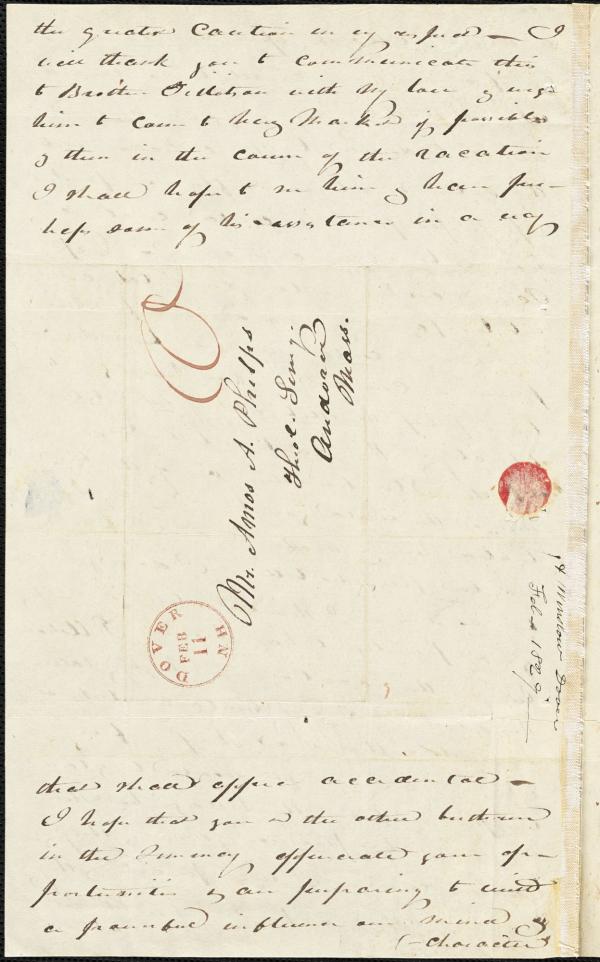 the greatest caution in my respect — I
will thank you to communicate this
to Brother Tillotson with my love & urge
him to come to here if possible
& then in the course of the vacation
I shall hope to see him & have per-
haps some of his assistance in a way
Mr. Amos A. Phelps
Theol. Semy.
Andover
Mass.
DOVER NH
FEB
11
Winslow Dover
Feb. 1829
that shall appear accidental —
I hope that you & the other brethren
in the Seminary appreciate your op-
portunities & are preparing to exert
a powerful influence over mind &
character